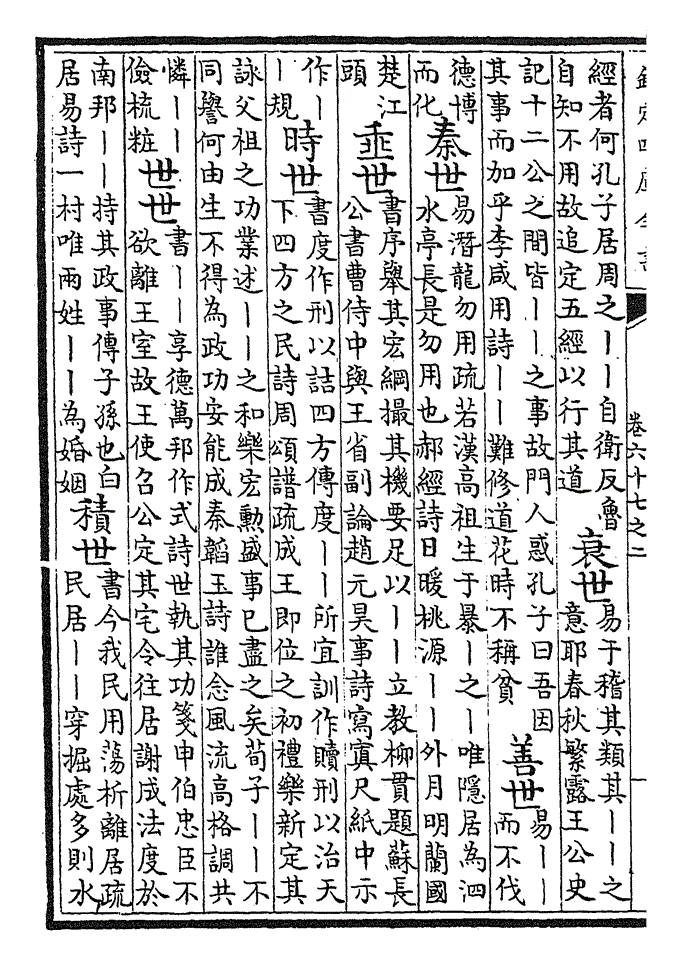 卷六十七之二
經者何孔子居周之丨丨自衛反魯
自知不用故追定五經以行其道
衰世
易于稽其類其丨丨之
意耶春秋繁露王公史
記十二公之間皆丨丨之事故門人惑孔子曰吾因
其事而加乎李咸用詩丨丨難修道花時不稱貧
善世
易丨丨
而不伐
德博
而化
秦世
易潛龍勿用疏若漢高祖生于暴丨之丨唯隱居為泗
水亭長是勿用也郝經詩日暖桃源丨丨外月明蘭國
楚江
頭
垂世
書序舉其宏綱撮其機要足以丨丨立教柳貫題蘇長
公書曹侍中與王省副論趙元昊事詩寫寘尺紙中示
作丨
丨規
時世
書度作刑以詰四方傳度丨丨所宜訓作贖刑以治天
下四方之民詩周頌譜疏成王即位之初禮樂新定其
詠父祖之功業述丨丨之和樂宏勲盛事已盡之矣荀子丨丨不
同譽何由生不得為政功安能成秦韜玉詩誰念風流高格調共
憐丨丨
儉梳粧
世世
書丨丨享德萬邦作式詩世執其功箋申伯忠臣不
欲離王室故王使召公定其宅令往居謝成法度於
南邦丨丨持其政事傳子孫也白
居易詩一村唯兩姓丨丨為婚姻
積世
書今我民用蕩析離居疏
民居丨丨穿掘處多則水